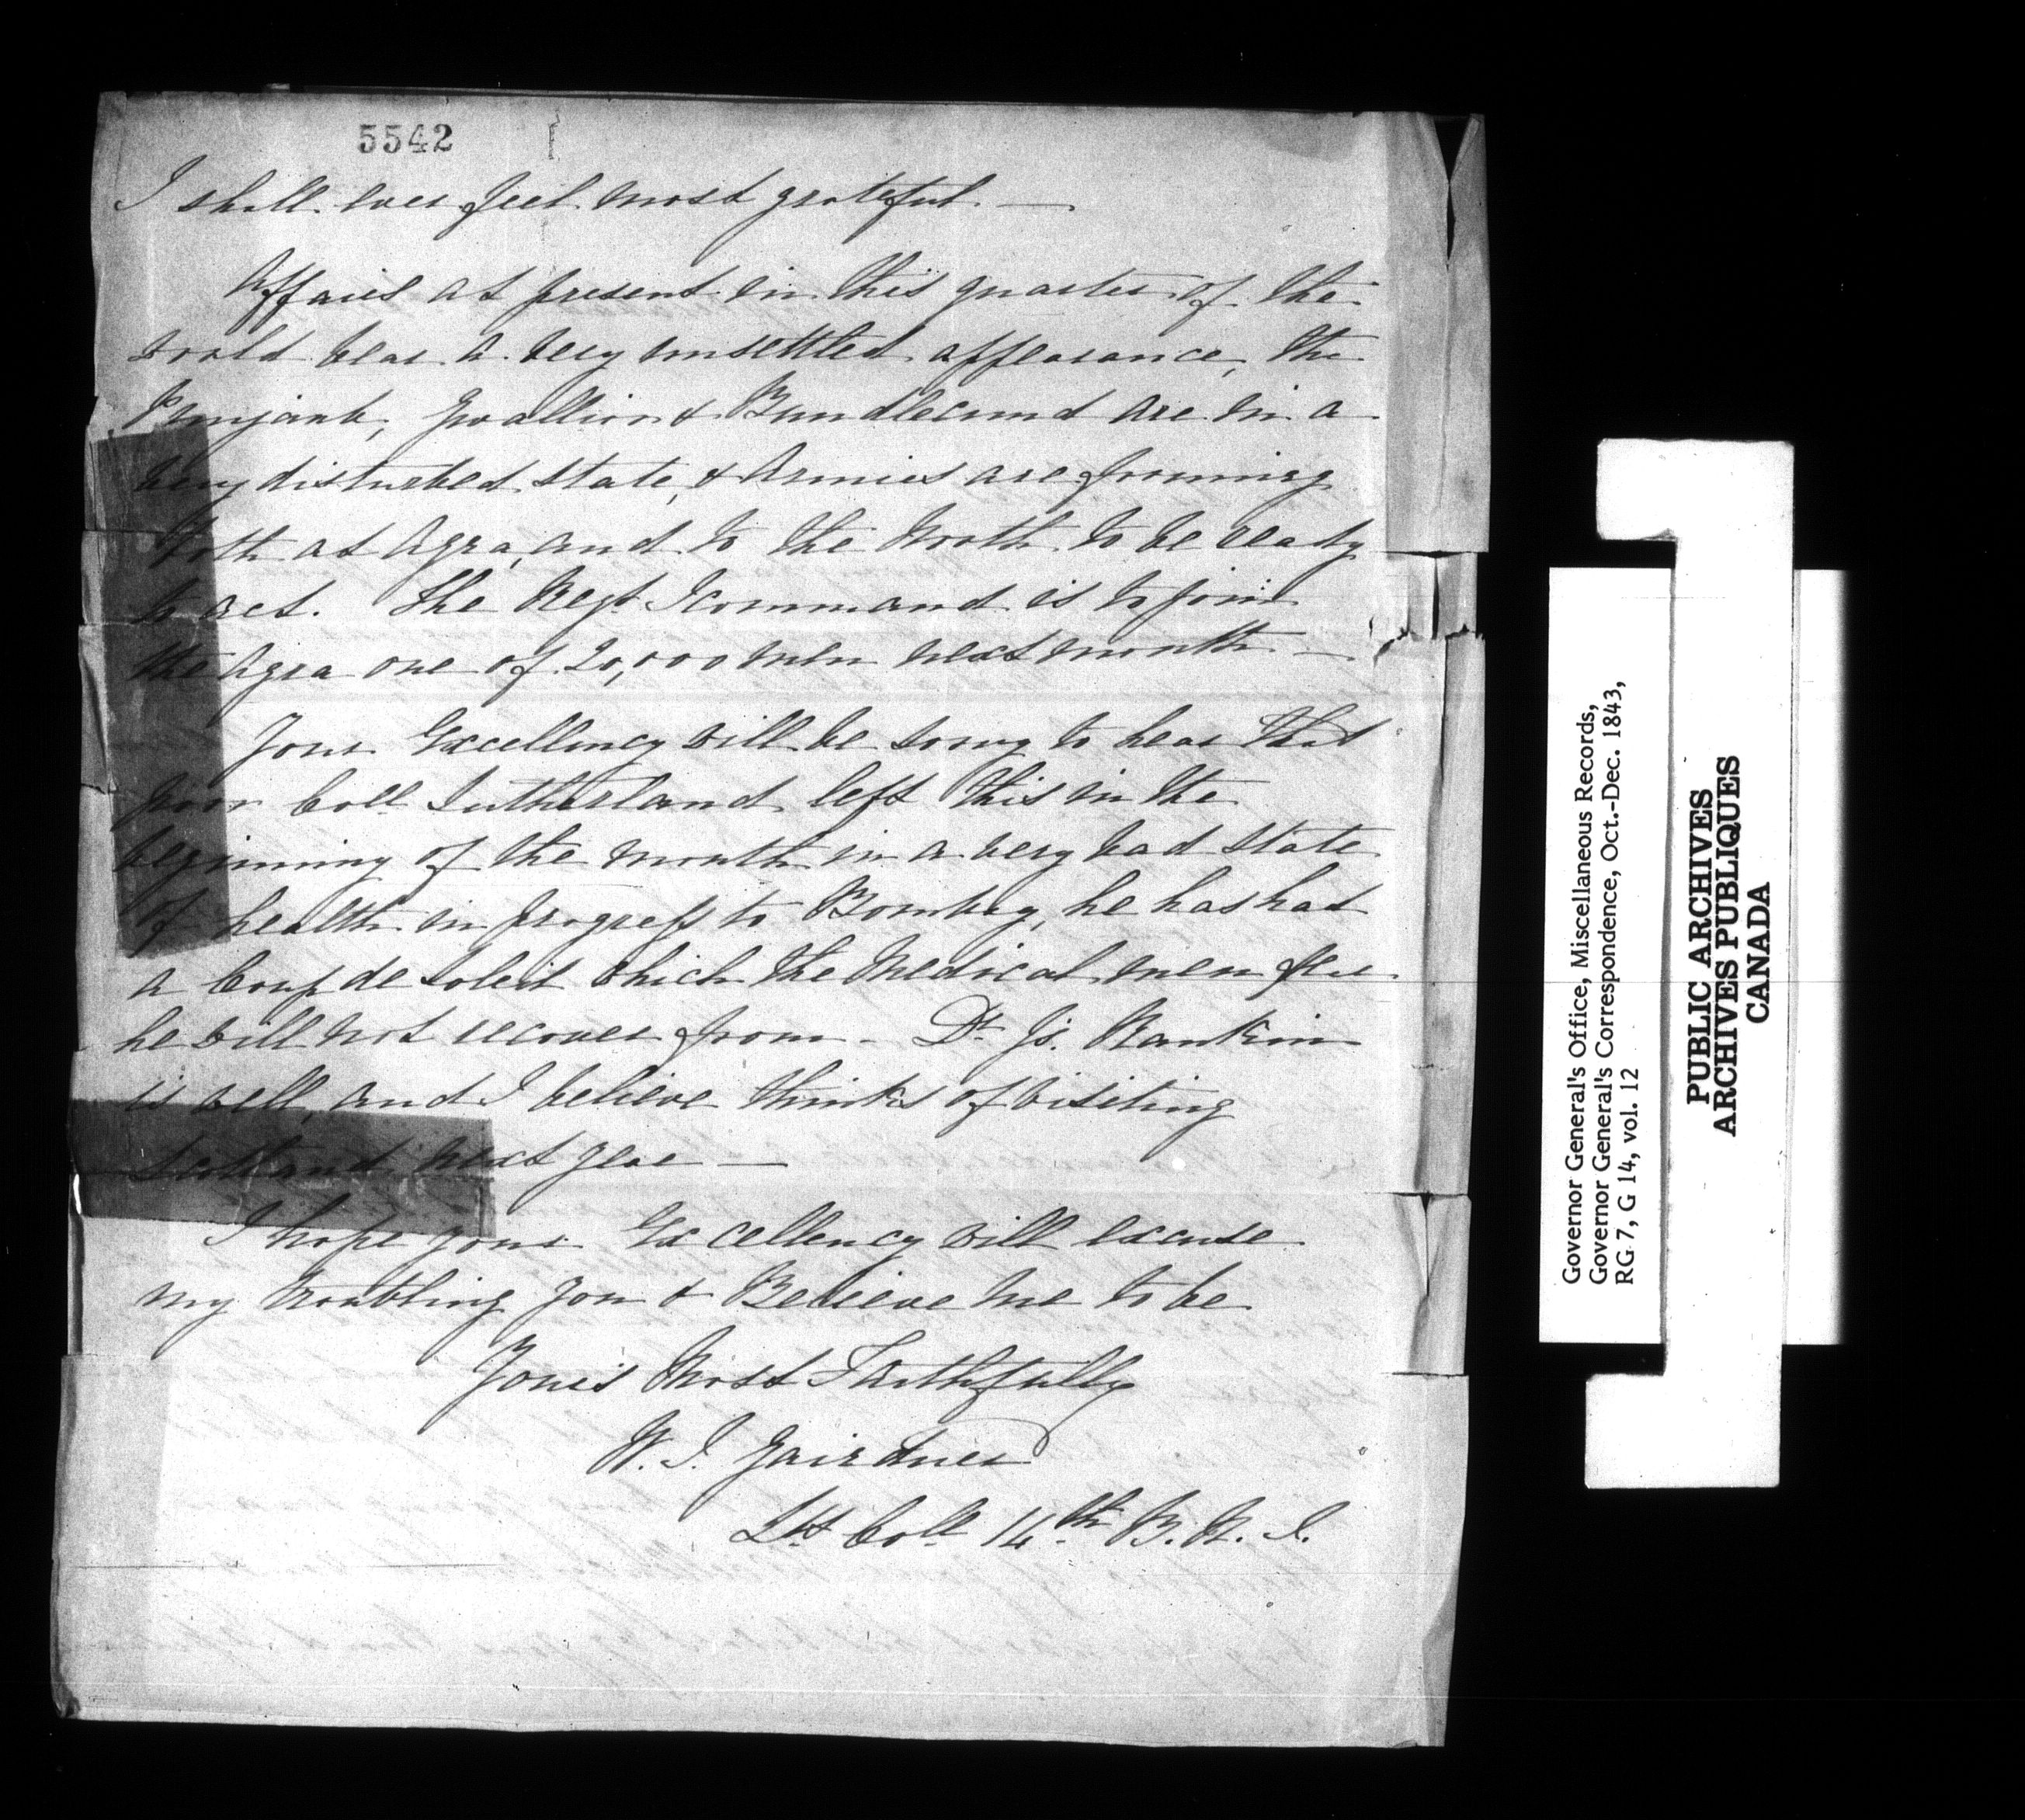 5542
I shall ever feel most grateful. —
Affairs at present in this quarter of the
world bear a very unsettled appearance, the
Punjaub, Gwallior & Bundlecund are in a
very disturbed state, & Armies are forming
both at Agra, and to the North to be ready
to act. The Regt I command is to join
the Agra one of 20,000 men next month —
Your Excellency will be sorry to hear that
poor Coll Sutherland left this in the
beginning of the month in a very bad state
of health in progress to Bombay, he has had
a Coup de soleil which the Medical men fear
he will not recover from - Dr Js. Rankin
is well, and I believe thinks of visiting
Scotland next year —
I hope your Excellency will excuse
my troubling you & Believe me to be
Yours Most Faithfully
W. J. Gairdner
Lt Coll 14th B. N. I.
Governor General's Office, Miscellaneous Records,
Governor General's Correspondence, Oct.-Dec. 1843,
RG 7, G 14, vol. 12
PUBLIC ARCHIVES
ARCHIVES PUBLIQUES
CANADA